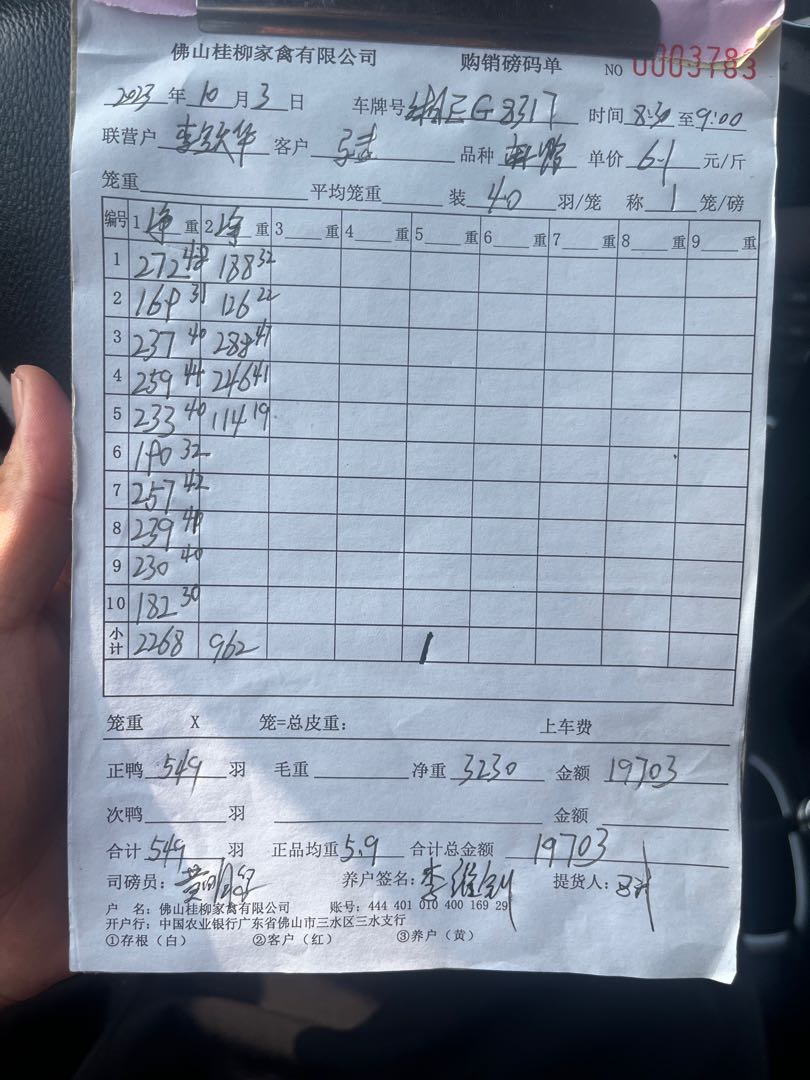 佛山桂柳家禽有限公司 购销磅码单 NO 0003783
2023年10月3日 车牌号 EG8317 时间8:30至9:00
联营户 李 华 客户 品种 单价6.1元/斤
笼重 平均笼重 装40羽/笼 称1笼/磅
编号 1净重 2净重 3重 4重 5重 6重 7重 8重 9重
1 272 48 188 32
2 169 31 126 22
3 237 40 288 47
4 259 44 246 41
5 233 40 114 19
6 190 32
7 257 42
8 239 41
9 230 40
10 182 30
小计 2268 962
笼重 X 笼=总皮重: 上车费
正鸭549羽 毛重 净重3230 金额19703
次鸭 羽 金额
合计549羽 正品均重5.9 合计总金额19703
司磅员: 黄明 养户签名: 李维钊 提货人:
户 名: 佛山桂柳家禽有限公司 账号: 444 401 010 400 169 29
开户行: 中国农业银行广东省佛山市三水区三水支行
①存根(白) ②客户(红) ③养户(黄)